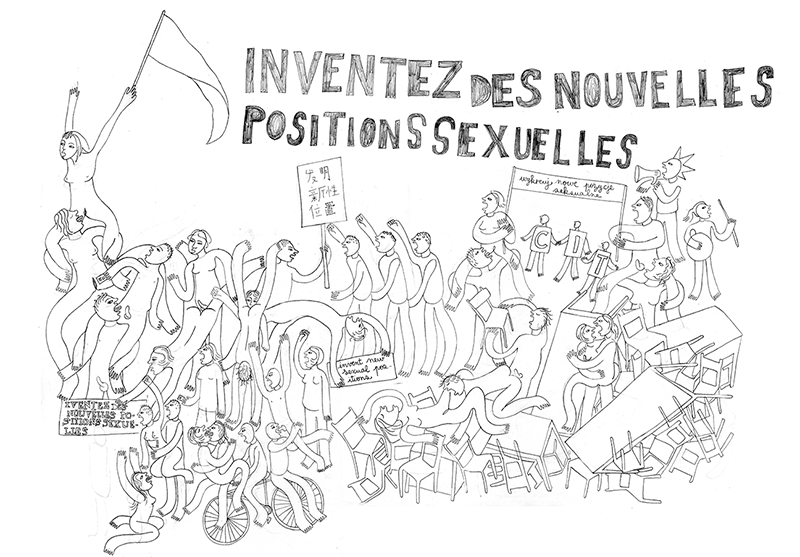 INVENTEZ DES NOUVELLES
POSITIONS SEXUELLES
发明
新性
位置
wykreuj nowe pozycje
seksualne
C D T
invent new
sexual pos-
itions
IVENTEZ DES
NOUVELLES PO-
SITIONS SEXUE-
LLES